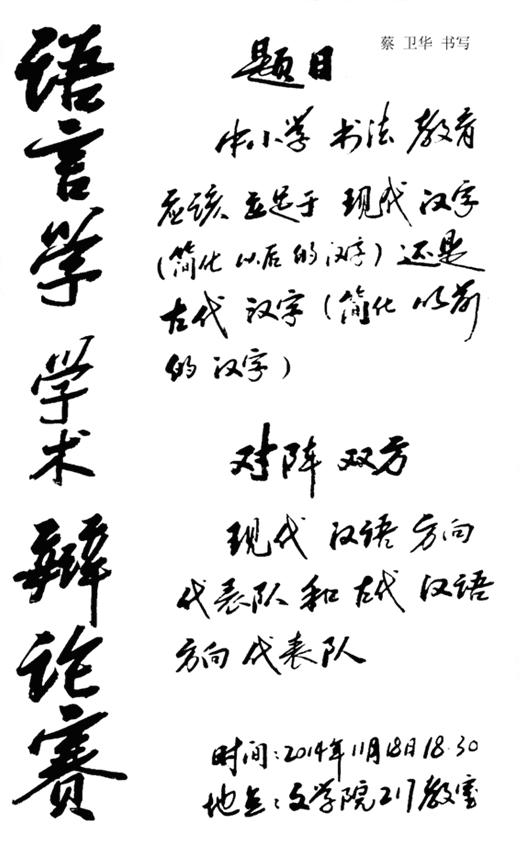 语言学学术辩论赛
蔡卫华 书写
题目
中小学 书法 教育
应该 立足于 现代 汉字
(简化 以后 的 汉字) 还是
古代 汉字 (简化 以前
的 汉字)
对阵 双方
现代 汉语 方向
代表队 和 古代 汉语
方向 代表队
时间:2014年11月18日18:30
地点:文学院217教室